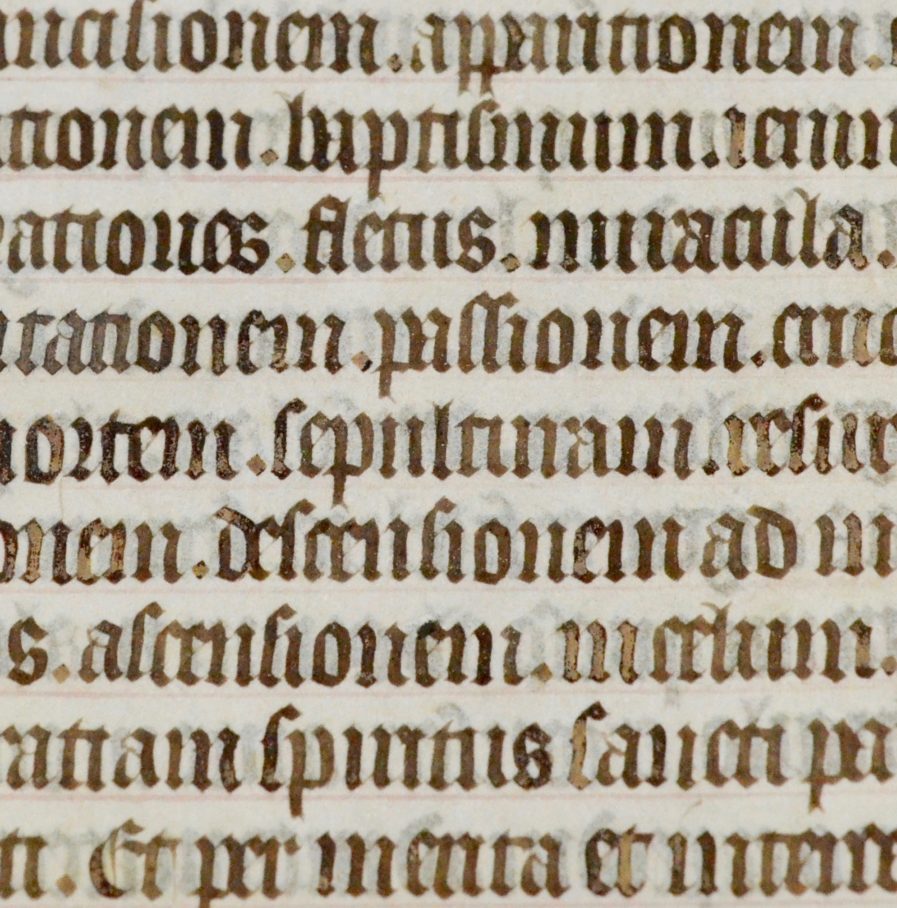 uncisionem. apparitionem.
tionem. baptismum. ieiun
rationes. fletus. miracula.
ratationem. passionem. cruc
mortem. sepulturam. resurre
onem. descensionem ad in
s. ascensionem. in celum.
ratiam spiritus sancti pa
ti. Et per merita et interce